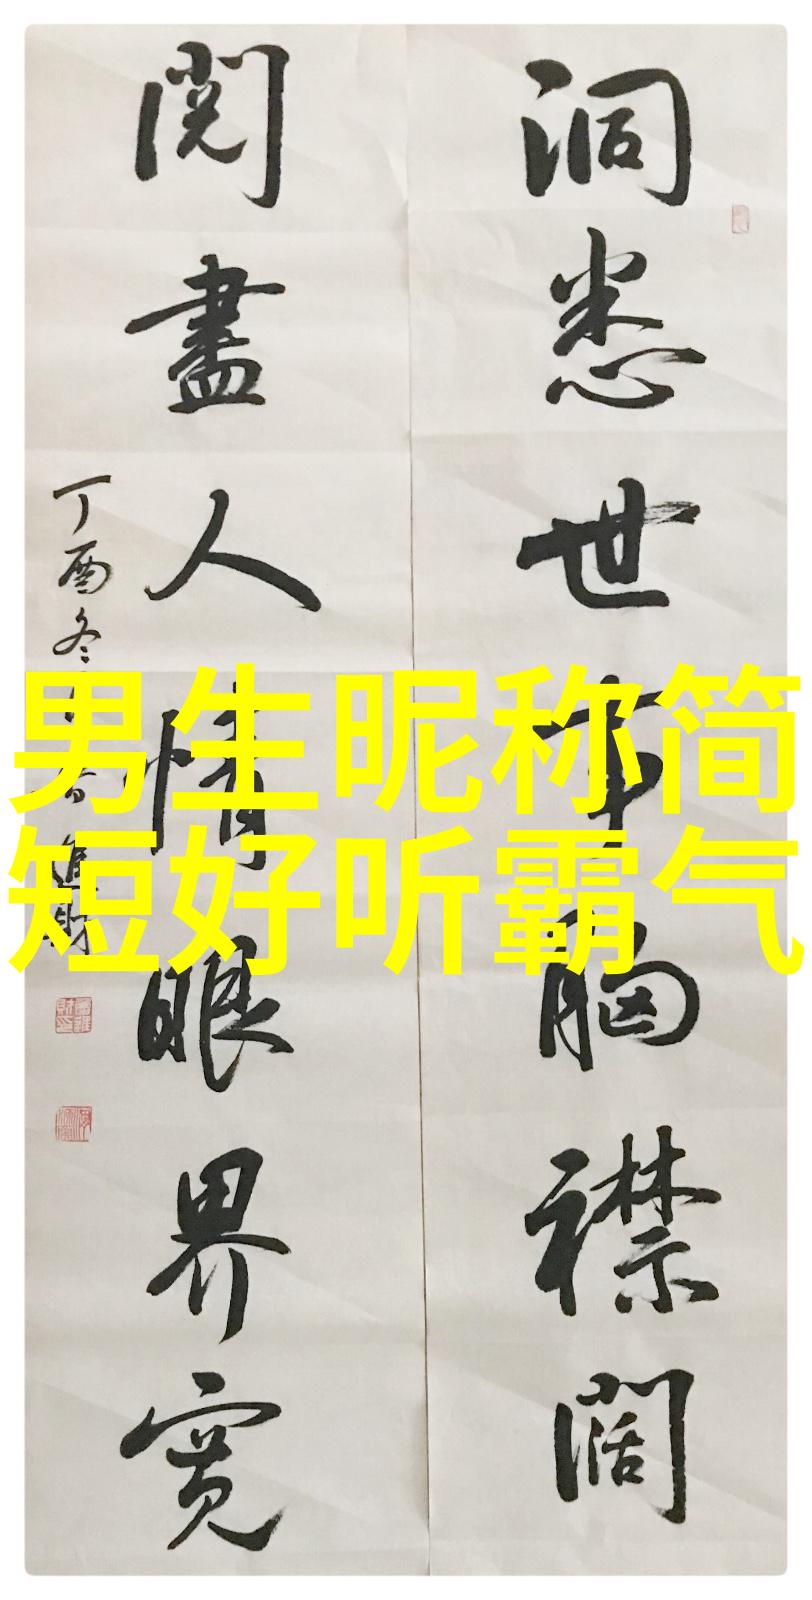 洞悉世事胸襟阔
閱盡人情眼界寬
丁酉冬
進財
男生昵称简
短好听霸气